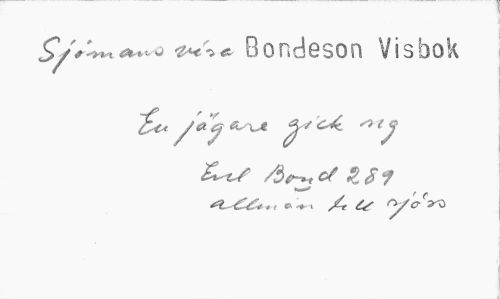 Sjömans visa Bondeson Visbok
En jägare gick sig
Enl Bond 289
allmän till sjöss